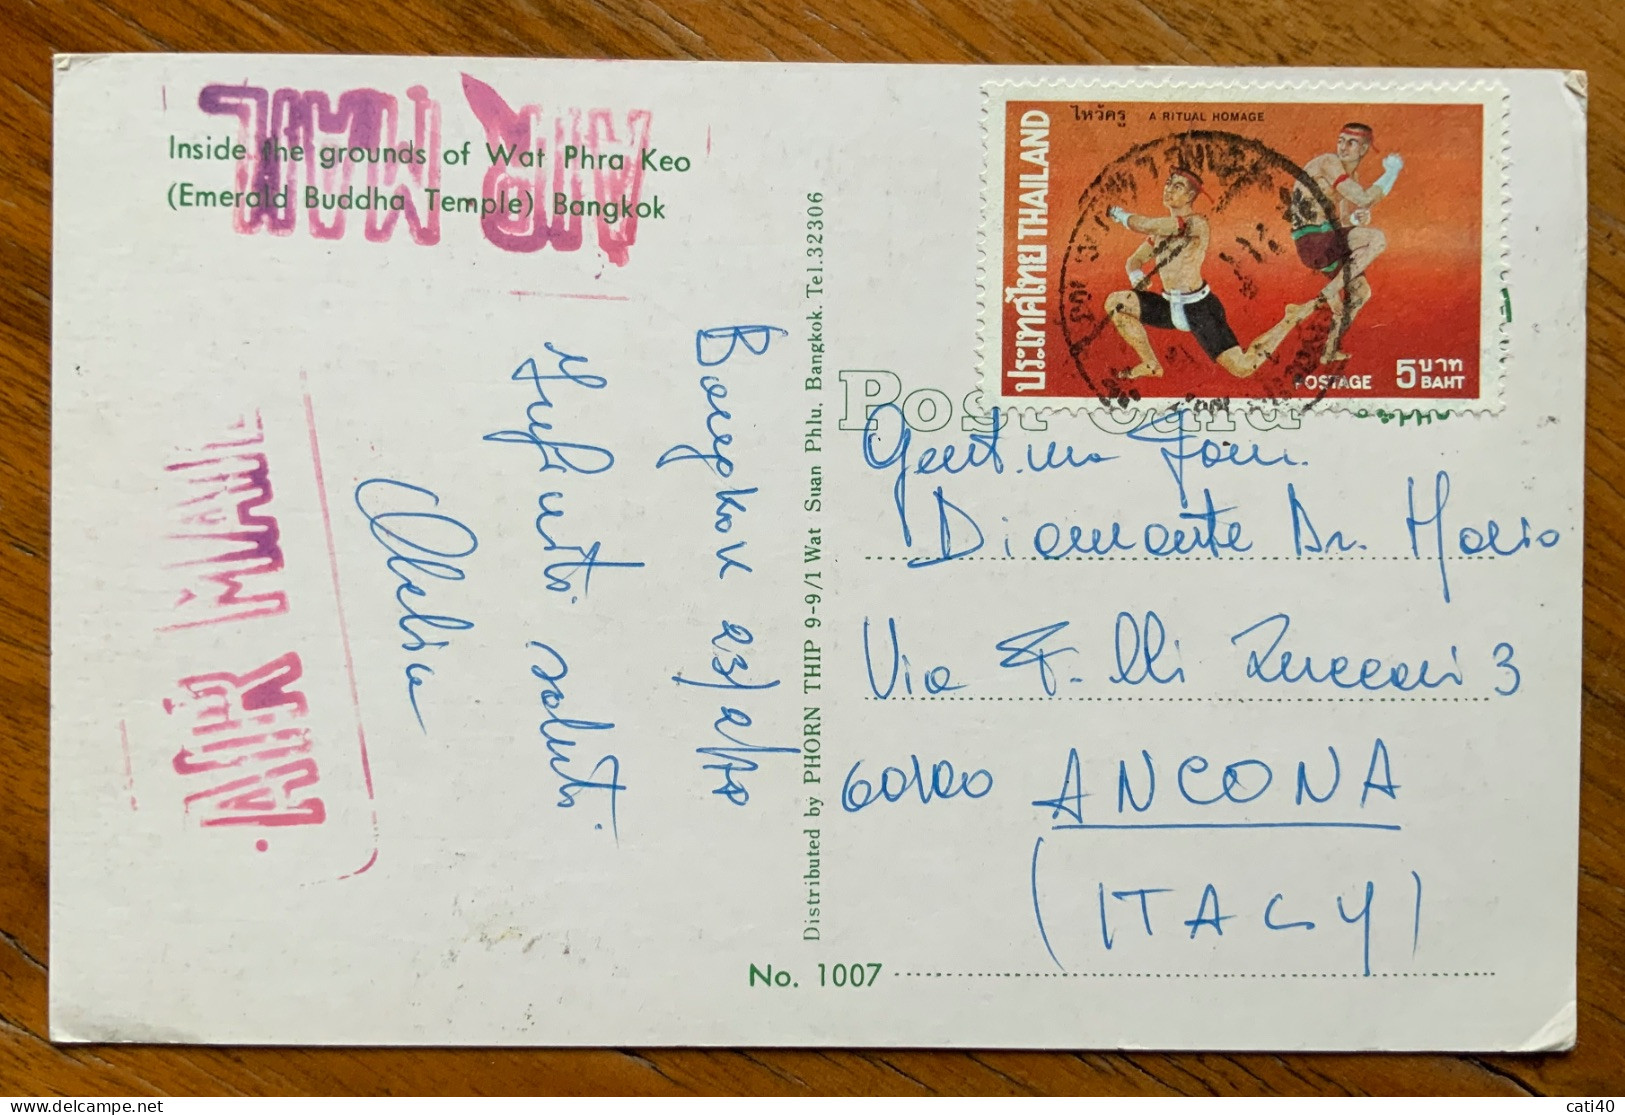 AIR MAIL
Inside the grounds of Wat Phra Keo
(Emerald Buddha Temple) Bangkok
AIR MAIL
Bangkok 23/2/
saluti
Distributed by PHORN THIP 9-9/1 Wat Suan Phlu, Bangkok. Tel.32306
ประเทศไทย THAILAND
ไหว้ครู A RITUAL HOMAGE
POSTAGE 5 บาท
BAHT
Post Card
Gent.ma Fam.
Diamante Dr. Mario
Via F.lli Zuccari 3
60100 ANCONA
(ITALY)
No. 1007
cati40